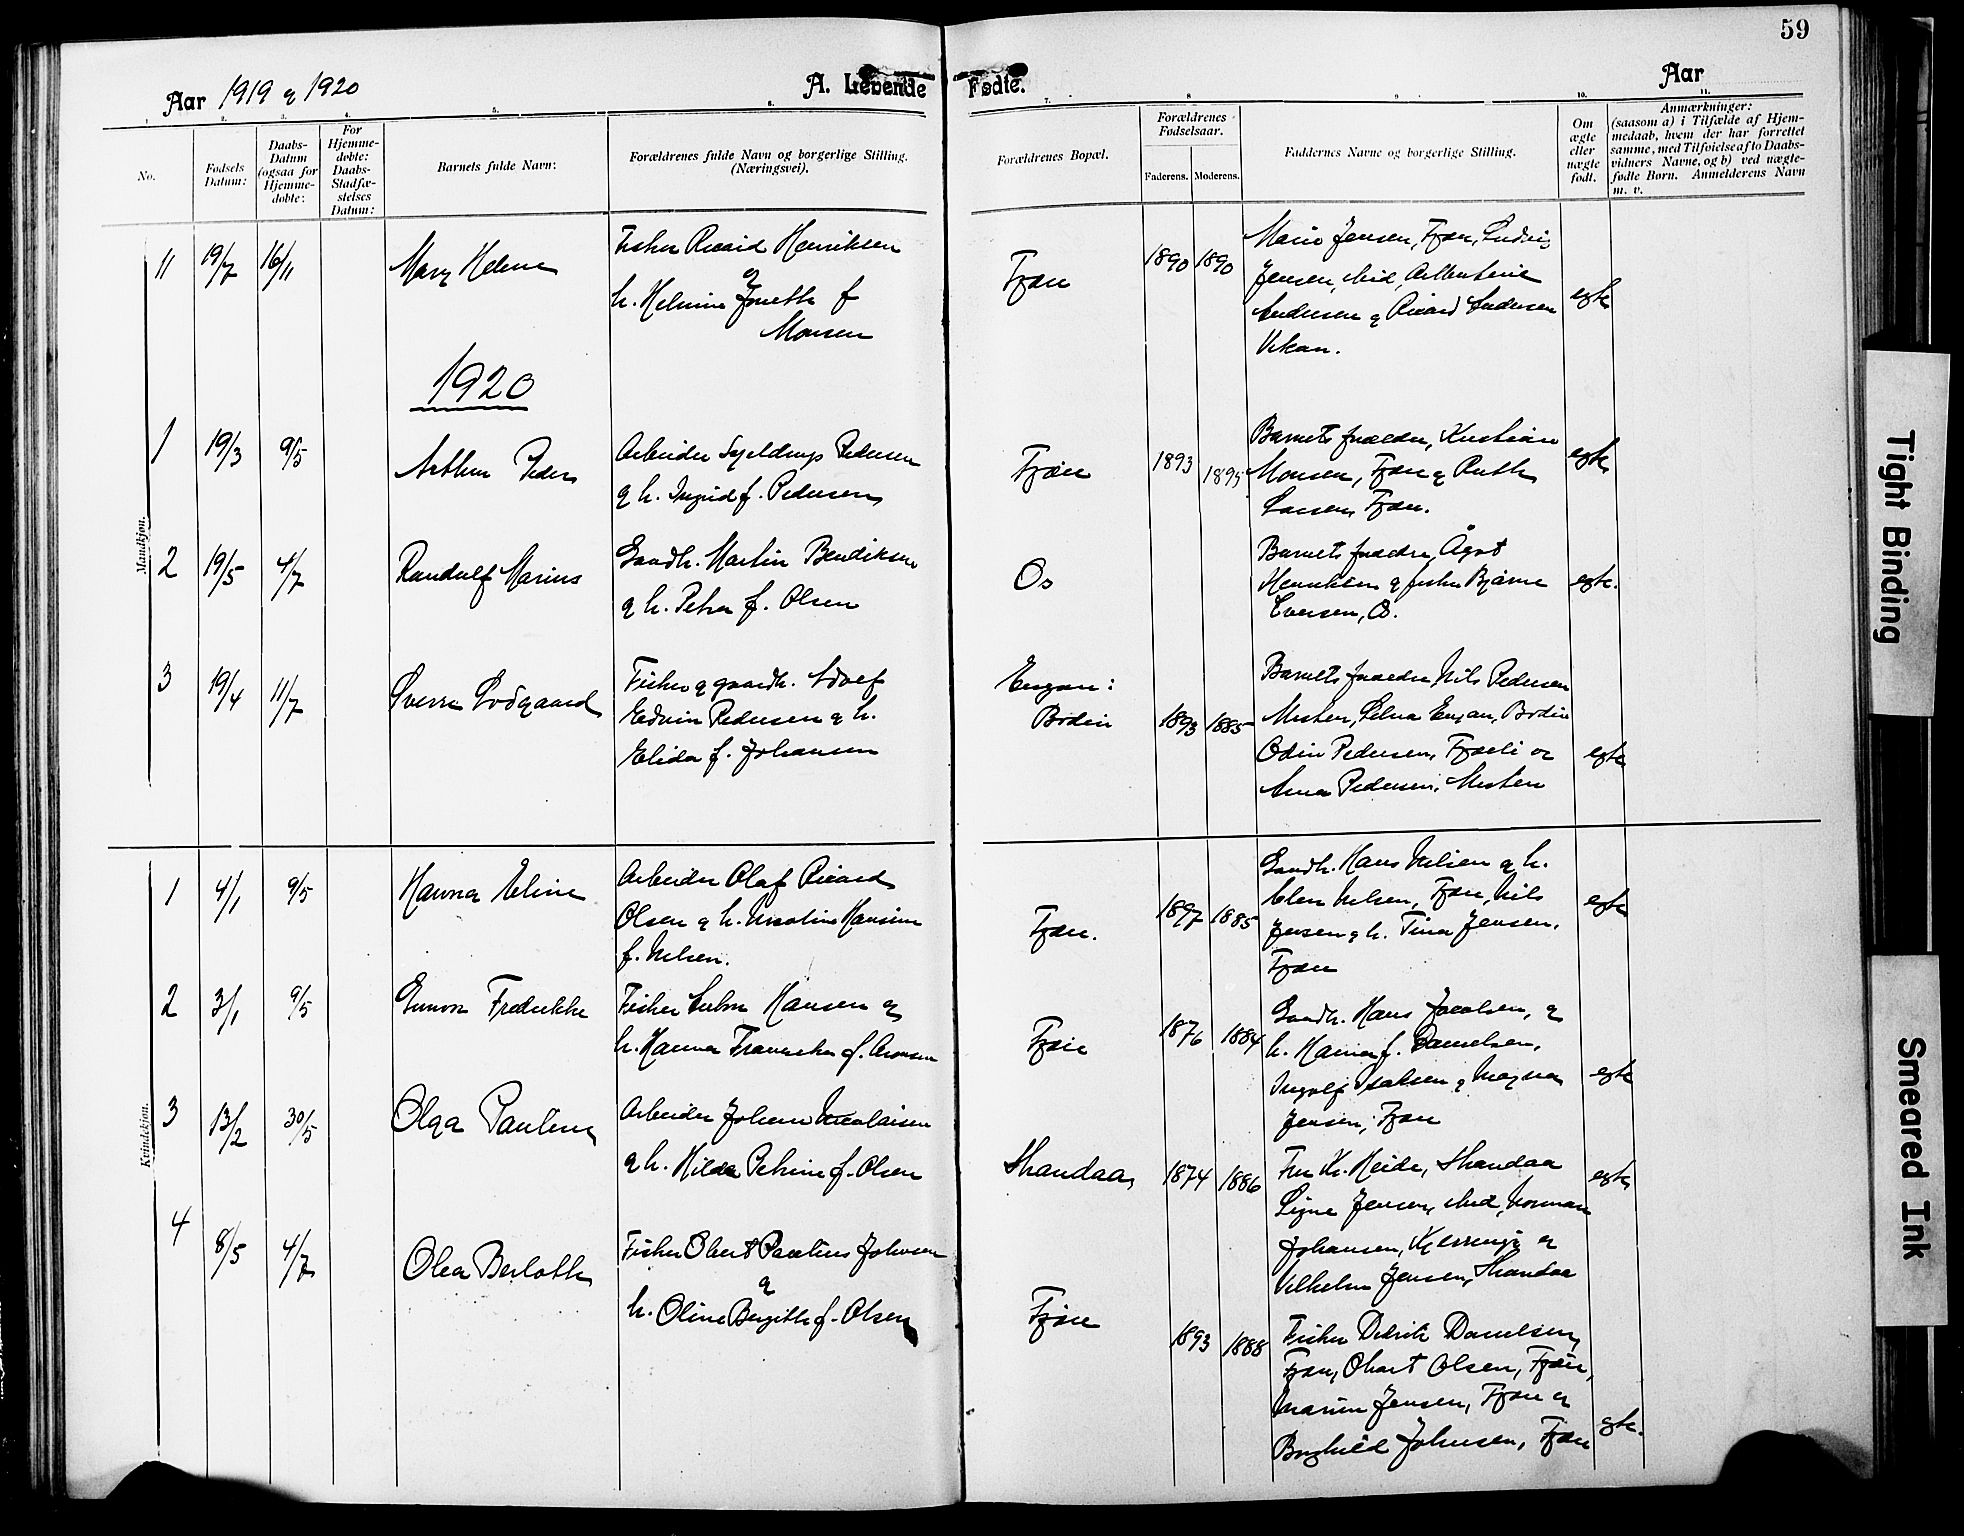 59
Aar 1919 & 1920
A. Levende Fødte.
Aar
1. 2. 3. 4. 5. 6. 7. 8 9 10. 11.
No.
Fødsels Datum:
Daabs-Datum (ogsaa for Hjemme-døbte:
For Hjemme-døbte: Daabs-Stadfæ-stelses Datum:
Barnets fulde Navn:
Forældrenes fulde Navn og borgerlige Stilling.
(Næringsvei).
Forældrenes Bopæl.
Forældrenes Fødselsaar.
Faderens. Moderens.
Faddernes Navne og borgerlige Stilling.
Om ægte eller nægte født.
Anmærkninger:
(saasom a) i Tilfælde af Hjem-
medaab, hvem der har forrettet
samme, med Tilføielse af to Daabs-
vidners Navne, og b) ved uægte-
fødte Børn. Anmelderens Navn
m. v.
Mandkjøn.
11 19/7 16/11 Mary Helene
Fisker Ricard Henriksen
&
h. Helmine Jonette f
Monsen
Tjøn 1890 1890
Marie Jensen, Tjøn, Ludvig
Jensen, ibid, Albertine
Andersen & Ricard Andersen
Vikan.
egte
1920
1 19/3 9/5 Arthur Peder
Arbeider Pedersen
& h. Ingrid f. Pedersen
Tjøn 1893 1895
Barnets forældre, Kristian
Monsen, Tjøn & Ruth
Larsen, Tjøn.
egte
2 19/5 4/7 Randulf Marius
Gaardb. Martin Bendiksen
& h. Petra f. Olsen
Os
Barnets forældre, Ågot
Henriksen & fisker Bjarne
Evensen, Os.
egte.
3 19/4 11/7 Sverre Lodgaard
Fisker & gaardb. Adolf
Edvin Pedersen & h.
Elida f. Johansen
Engan:
Bodin 1893 1885
Barnets forældre Nils Pedersen
Engan, Bodin
Odin Pedersen, og
Anna Pedersen,
egte
Kvindekjøn.
1 4/1 9/5 Hanna Eline
Arbeider Olaf Ricard
Olsen & h. Nicoline Hansine
f. Nilsen.
Tjøn. 1897 1885
Gaardb. Hans Nilsen & h.
Elen Nilsen, Tjøn, Nils
Jensen & h. Tina Jensen,
Tjøn
egte
2 3/1 9/5 Emma Fredrikke
Fisker Hansen &
h. Hanna Franciska f. Aronsen
Tjøn 1876 1884
Gaardb. Hans Jacobsen, &
h. Hanna f. Danielsen,
Ingolf Isaksen & Magna
Jensen, Tjøn
egte
3 13/2 30/5 Olga Pauline
Arbeider Johan Nicolaisen
& h. Hilda Petrine f. Olsen
Strandaa 1874 1886
Fru Kr. Heide, Strandaa
Signe Jensen, ibid, Norman
Johansen, Kjerringø &
Vilhelm Jensen, Strandaa
egte
4 8/5 4/7 Olea Berlotte
Fisker Obert Paulius Johnsen
&
h. Oline Bergitte f. Olsen
Tjøn 1893 1888
Fisker Didrik Danielsen,
Tjøn, Obert Olsen, Tjøn,
Marine Jensen, Tjøn &
Borghild Johnsen, Tjøn
egte.
Tight Binding
Smeared Ink